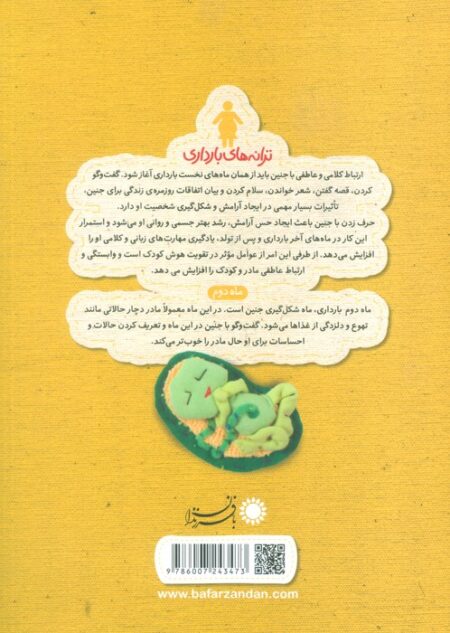 ترانه‌های بارداری
ارتباط کلامی و عاطفی با جنین باید از همان ماه‌های نخست بارداری آغاز شود. گفت‌وگو
کردن، قصه گفتن، شعر خواندن، سلام کردن و بیان اتفاقات روزمره‌ی زندگی برای جنین،
تأثیرات بسیار مهمی در ایجاد آرامش و شکل‌گیری شخصیت او دارد.
حرف زدن با جنین باعث ایجاد حس آرامش، رشد بهتر جسمی و روانی او می‌شود و استمرار
این کار در ماه‌های آخر بارداری و پس از تولد، یادگیری مهارت‌های زبانی و کلامی او را
افزایش می‌دهد. از طرفی این امر از عوامل مؤثر در تقویت هوش کودک است و وابستگی و
ارتباط عاطفی مادر و کودک را افزایش می دهد.
ماه دوم
ماه دوم بارداری، ماه شکل‌گیری جنین است. در این ماه معمولاً مادر دچار حالاتی مانند
تهوع و دلزدگی از غذاها می‌شود. گفت‌وگو با جنین در این ماه و تعریف کردن حالات و
احساسات برای او حال مادر را خوب‌تر می‌کند.
با فرزندان
9 786007 243473
www.bafarzandan.com